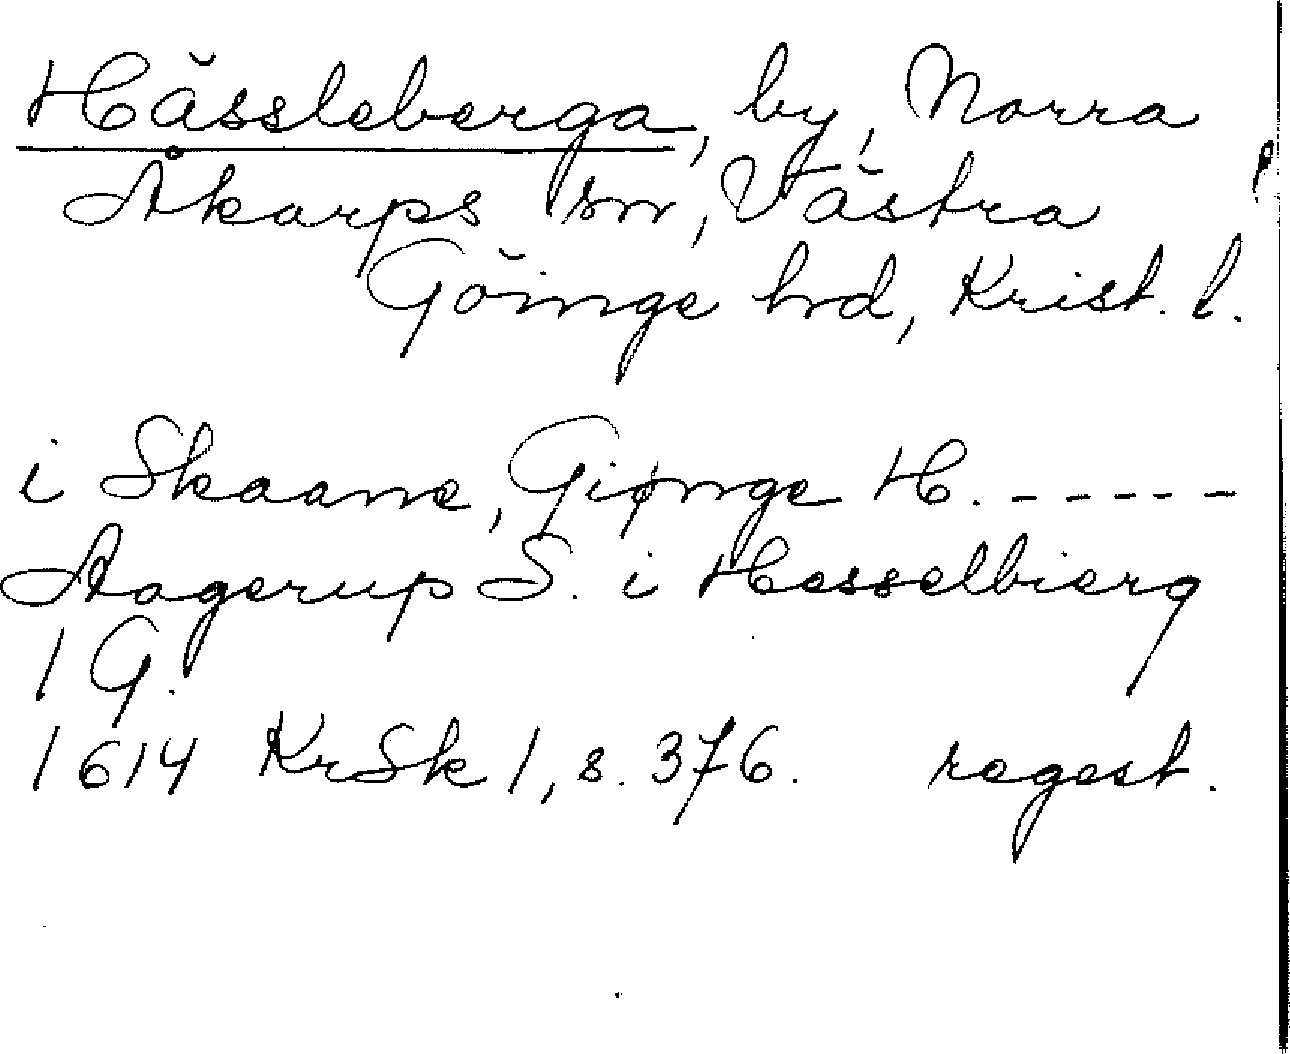 Hässleberga, by, Norra
Åkarps sn, Västra
Göinge hrd, Krist. l.
i Skaane, Giønge H. - - - - -
Aagerup S. i Hesselbierg
1 G.
1614 KrSk 1, s. 376. regest.